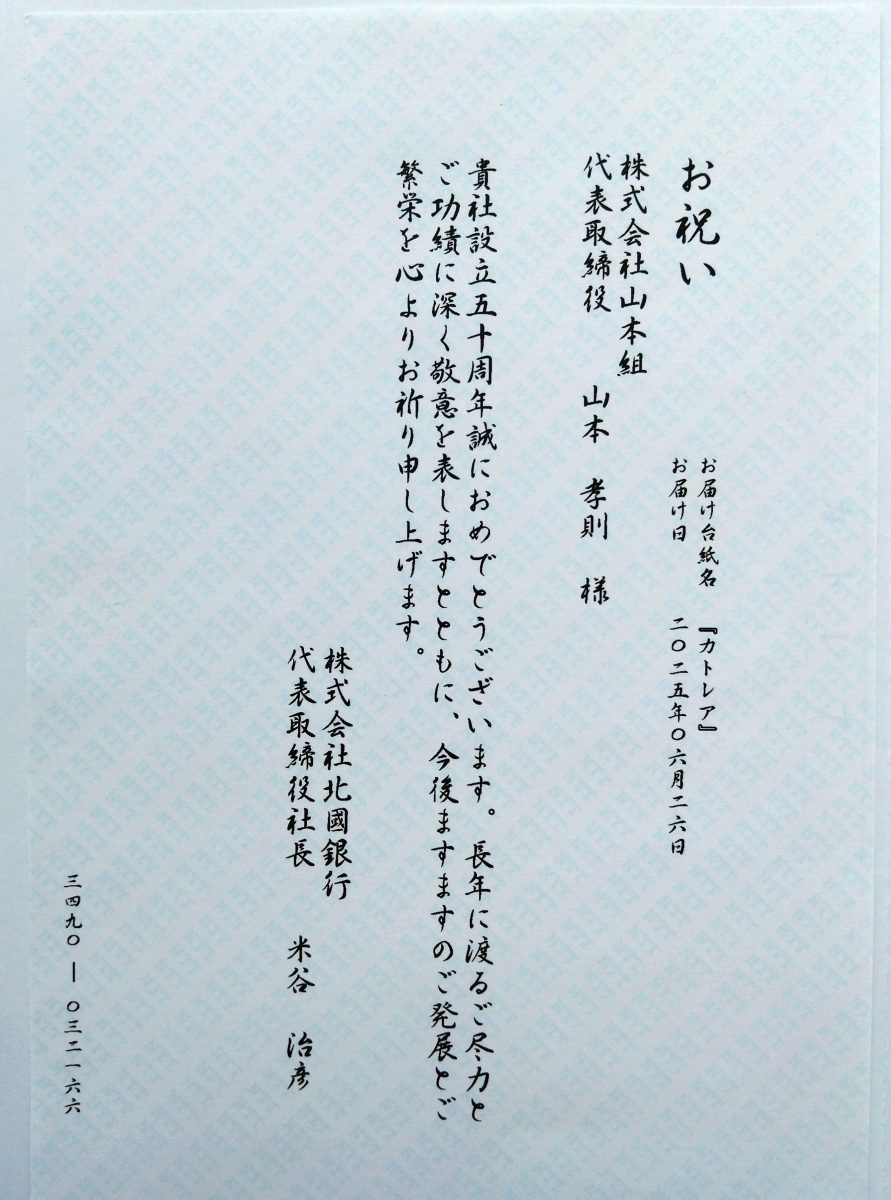 お祝い
お届け台紙名 『カトレア』
お届け日 二〇二五年〇六月二六日
株式会社山本組
代表取締役 山本 孝則 様
貴社設立五十周年誠におめでとうございます。長年に渡るご尽力と
ご功績に深く敬意を表しますとともに、今後ますますのご発展とご
繁栄を心よりお祈り申し上げます。
株式会社北國銀行
代表取締役社長 米谷 治彦
三四九〇ー〇三二一六六